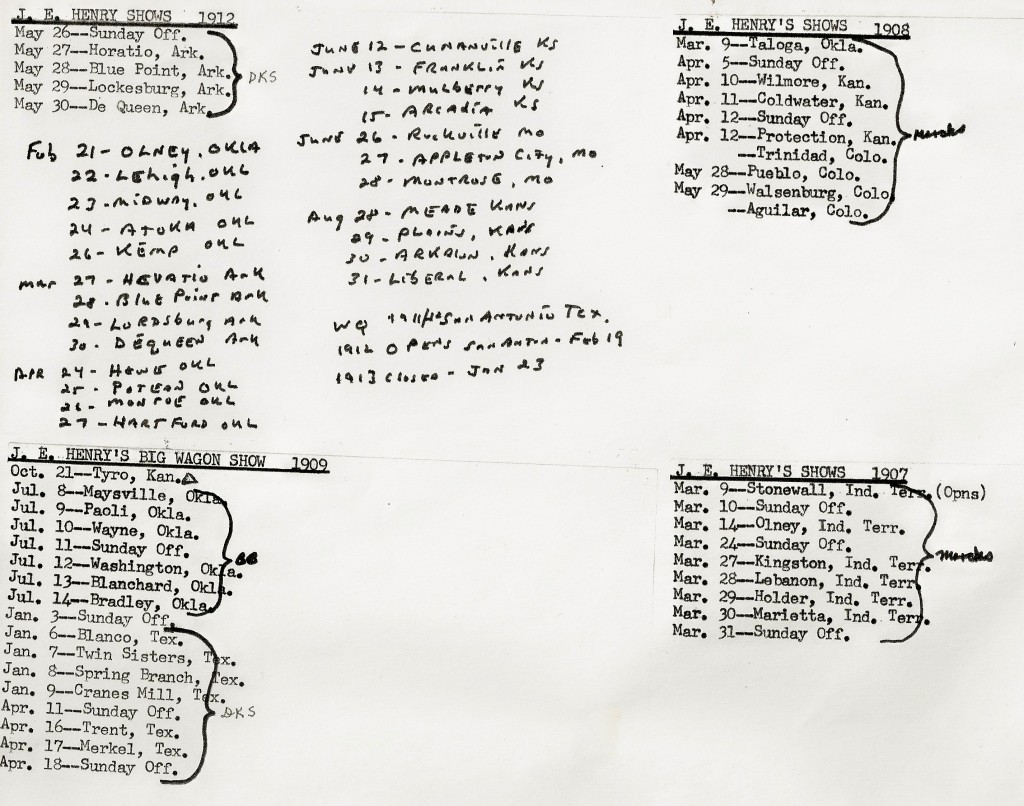 J. E. HENRY SHOWS 1912
May 26--Sunday Off.
May 27--Horatio, Ark.
May 28--Blue Point, Ark.
May 29--Lockesburg, Ark.
May 30--De Queen, Ark.
DKS
Feb 21-OLNEY, OKLA
22-LEhigh, OKL
23-MIDWAY, OKL
24-ATOKA OKL
26-KEMP OKL
MAR 27-HEVATIO ARK
28-Blue Point ARK
29-LORDSburg ARK
30-DEQUEEN ARK
APR 24-HOWE OKL
25-POTEAN OKL
26-MONROE OKL
27-HARTFORD OKL
JUNE 12-CUNANVILLE KS
JUNE 13-FRANKLIN KS
14-MULBERRY KS
15-ARCADIA KS
JUNE 26-ROCKVILLE MO
27-APPLETON CITY, MO
28-MONTROSE, MO
Aug 28-MEADE KANS
29-PLAINS, KANS
30-ARKALON, KANS
31-LIBERAL, KANS
WQ SAN ANTONIO TEX.
1912 OPENS SAN ANTON-Feb 19
1913 CLOSED-JAN 23
J. E. HENRY'S SHOWS 1908
Mar. 9--Taloga, Okla.
Apr. 5--Sunday Off.
Apr. 10--Wilmore, Kan.
Apr. 11--Coldwater, Kan.
Apr. 12--Sunday Off.
Apr. 12--Protection, Kan.
--Trinidad, Colo.
May 28--Pueblo, Colo.
May 29--Walsenburg, Colo
--Aguilar, Colo.
J. E. HENRY'S BIG WAGON SHOW 1909
Oct. 21--Tyro, Kan.
Jul. 8--Maysville, Okla.
Jul. 9--Paoli, Okla.
Jul. 10--Wayne, Okla.
Jul. 11--Sunday Off.
Jul. 12--Washington, Okla.
Jul. 13--Blanchard, Okla.
Jul. 14--Bradley, Okla.
BB
Jan. 3--Sunday Off.
Jan. 6--Blanco, Tex.
Jan. 7--Twin Sisters, Tex.
Jan. 8--Spring Branch, Tex.
Jan. 9--Cranes Mill, Tex.
Apr. 11--Sunday Off.
Apr. 16--Trent, Tex.
Apr. 17--Merkel, Tex.
Apr. 18--Sunday Off.
DKS
J. E. HENRY'S SHOWS 1907
Mar. 9--Stonewall, Ind. Terr. (Opns)
Mar. 10--Sunday Off.
Mar. 14--Olney, Ind. Terr.
Mar. 24--Sunday Off.
Mar. 27--Kingston, Ind. Terr.
Mar. 28--Lebanon, Ind. Terr.
Mar. 29--Holder, Ind. Terr.
Mar. 30--Marietta, Ind. Terr.
Mar. 31--Sunday Off.